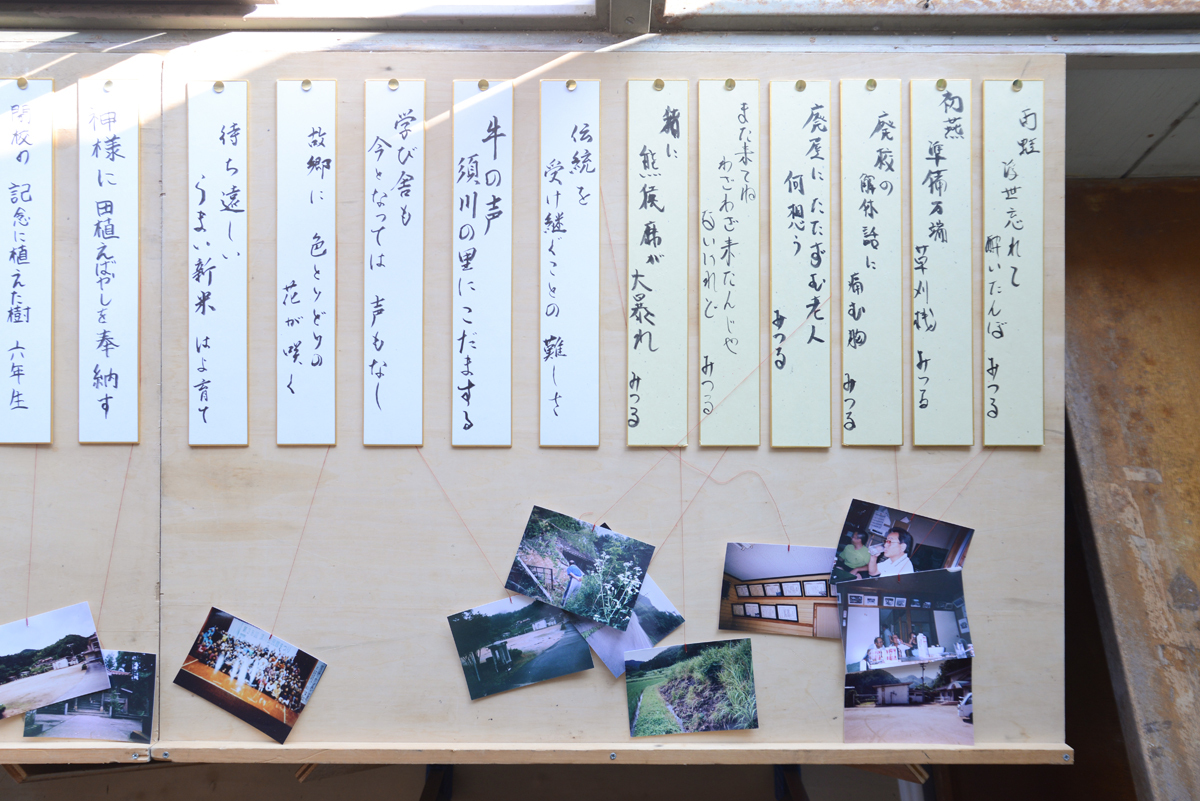 雨蛙
浮世忘れて
酔いたんぼ みつる
初燕
準備万端
草刈機 みつる
廃校の
解体話に
痛む胸 みつる
廃屋に たたずむ老人
何想う
みつる
また来てね
わざわざ来たんじゃ
ないけれど みつる
猪に
熊猴鹿が
大暴れ みつる
伝統を
受け継ぐことの 難しさ
牛の声
須川の里に こだまする
学び舎も
今となっては 声もなし
故郷に 色とりどりの
花が咲く
待ち遠しい
うまい新米 はよ育て
神様に 田植えばやしを 奉納す
閉校の 記念に植えた樹 六年生